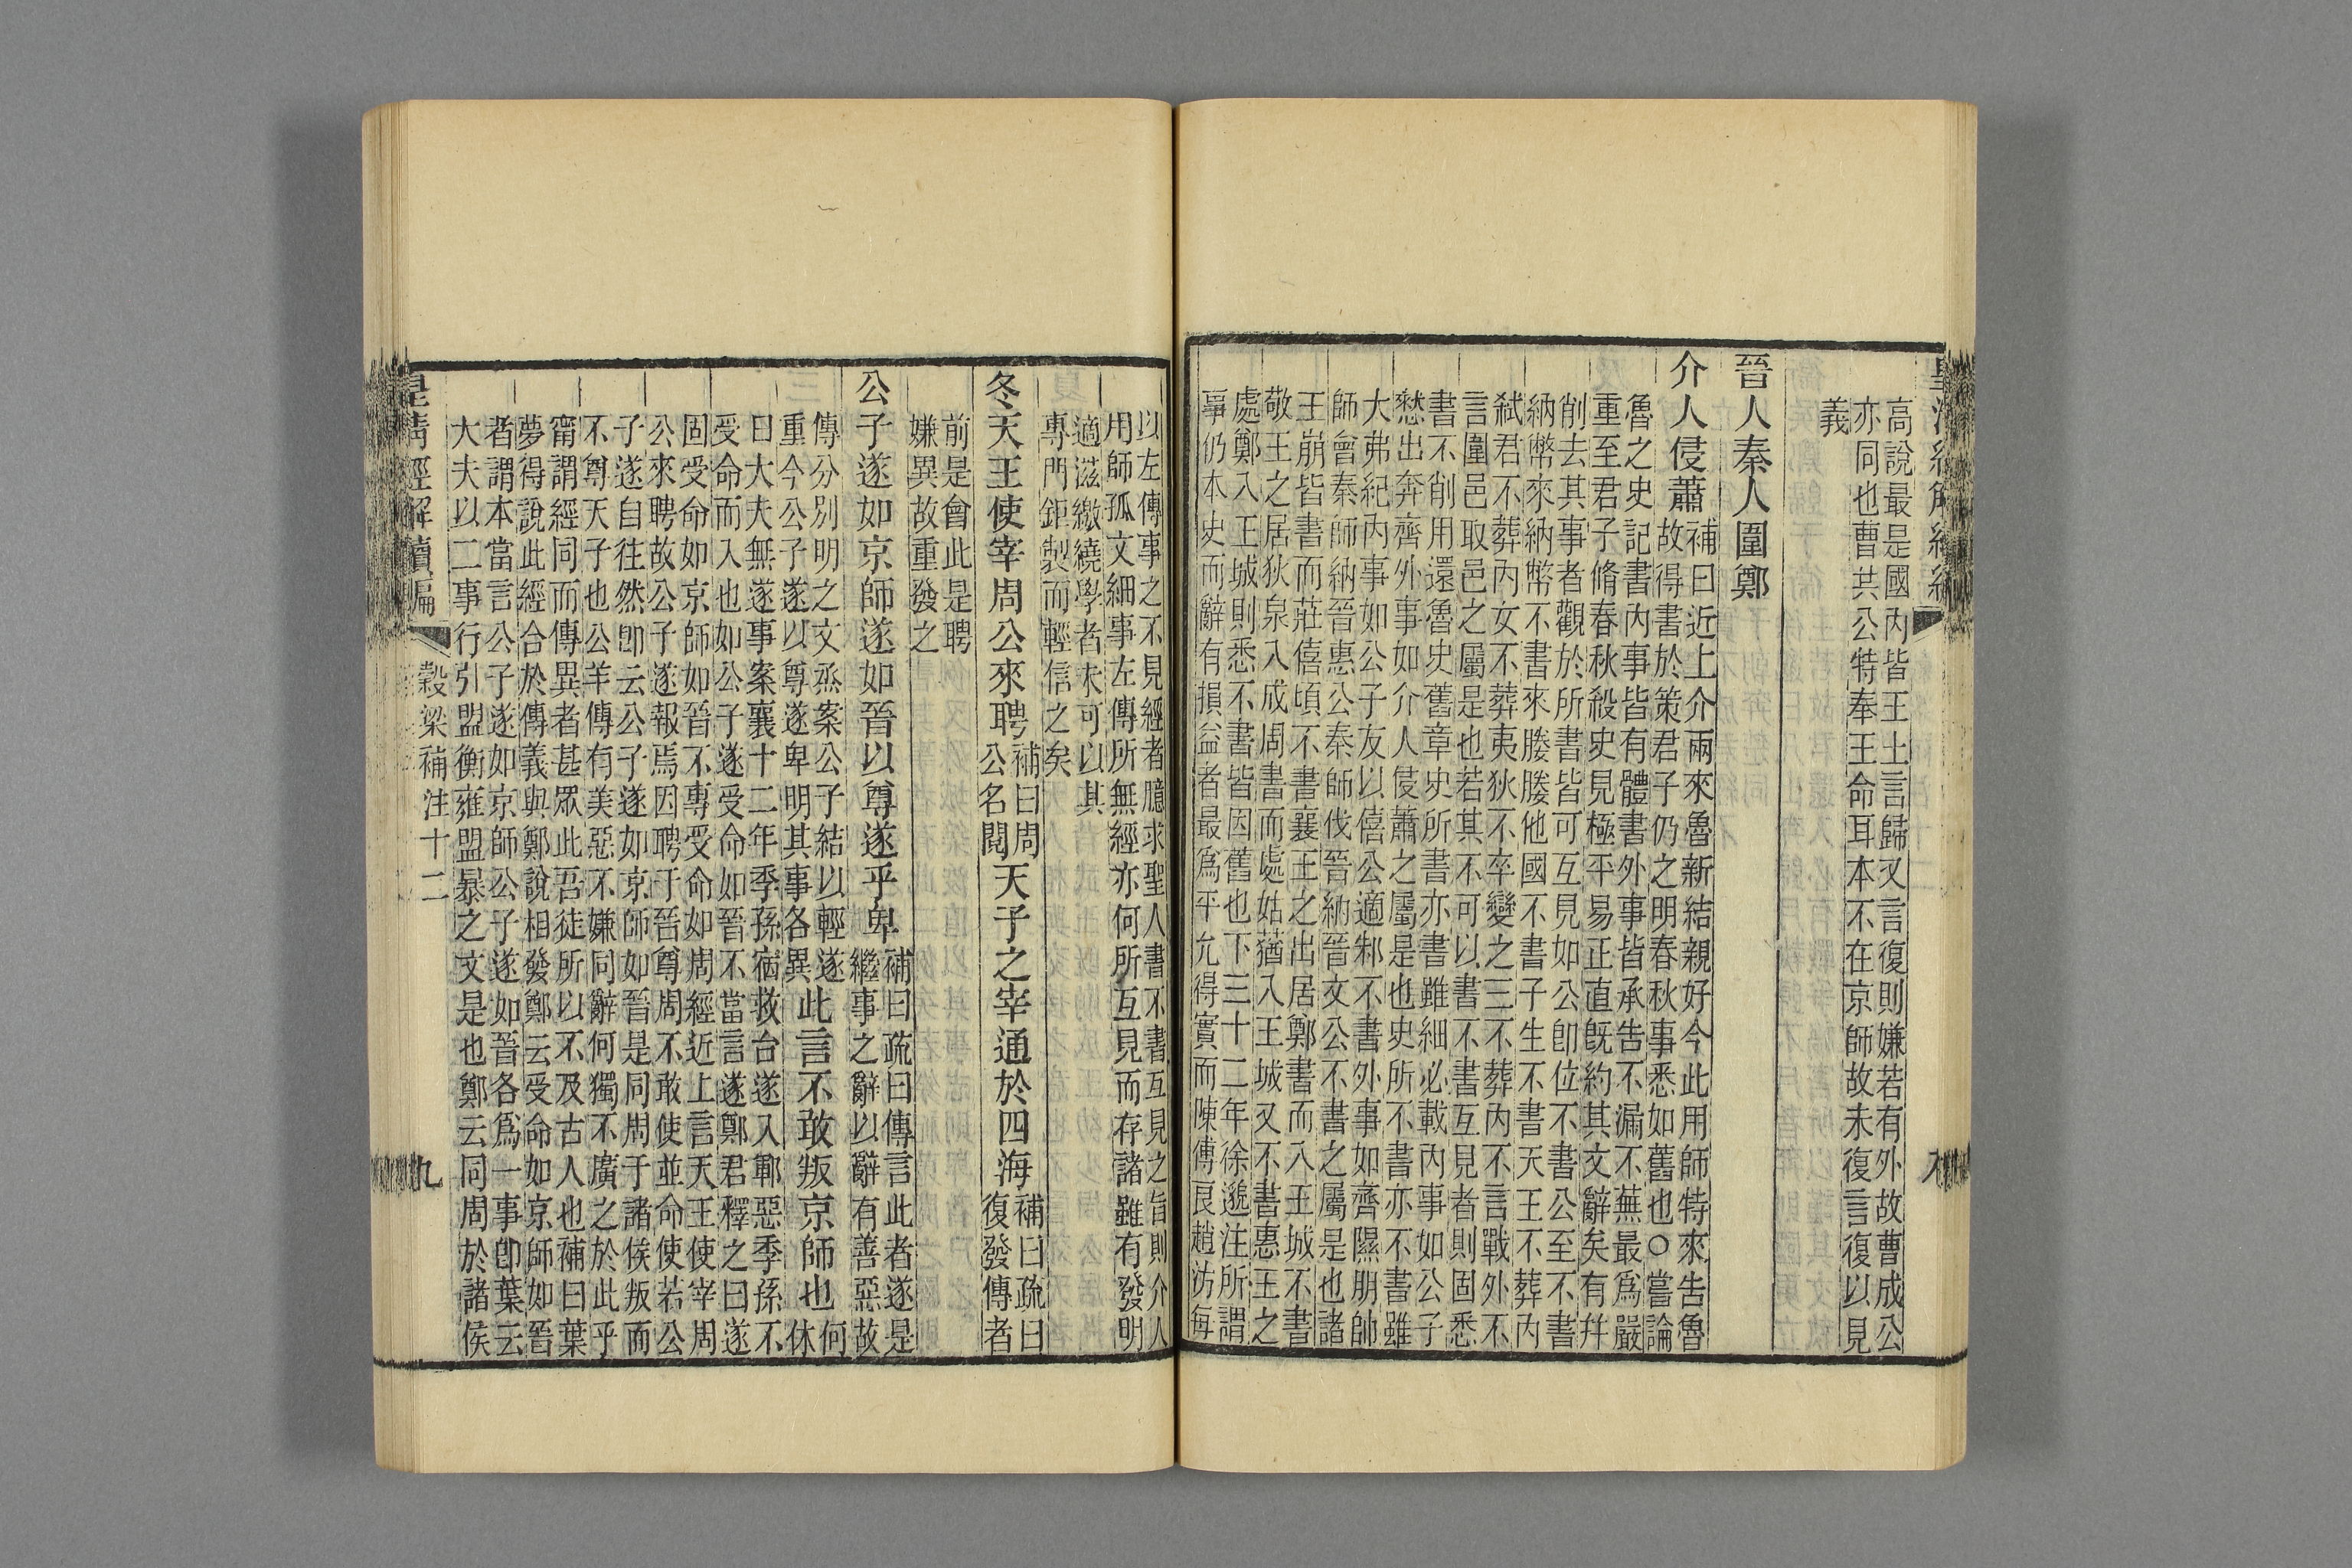 高說最是國內皆王土言歸又言復則嫌若有外故曹成公
亦同也曹共公特奉王命耳本不在京師故未復言復以見
義
晉人秦人圍鄭
介人侵蕭
補曰近上介兩來魯新結親好今此用師特來告魯
故得書於策君子仍之明春秋事悉如舊也○嘗論
魯之史記書內事皆有體書外事皆承告不漏不蕪最爲嚴
重至君子脩春秋殺史見極平易正直旣約其文辭矣有幷
削去其事者觀於所書皆可互見如公卽位不書公至不書
納幣來納幣不書來媵媵他國不書子生不書天王不葬內
弑君不葬內女不葬夷狄不卒變之三不葬內不言戰外不
言圍邑取邑之屬是也若其不可以書不書互見者則固悉
書不削用還魯史舊章史所書亦書雖細必載內事如公子
憖出奔齊外事如介人侵蕭之屬是也史所不書亦不書雖
大弗紀內事如公子友以僖公適邾不書外事如齊隰朋帥
師會秦師納晉惠公秦師伐晉納晉文公不書之屬是也諸
王崩皆書而莊僖頃不書襄王之出居鄭書而入王城不書
敬王之居狄泉入成周書而處姑蕕入王城又不書惠王之
處鄭入王城則悉不書皆因舊也下三十二年徐邈注所謂
事仍本史而辭有損益者最爲平允得實而陳傅良趙汸每
以左傳事之不見經者臆求聖人書不書互見之旨則介人
用師孤文細事左傳所無經亦何所互見而存諸雖有發明
適滋繳繞學者未可以其
專門鉅製而輕信之矣
冬天王使宰周公來聘
補曰周
公名閱
天子之宰通於四海
補曰疏曰
復發傳者
前是會此是聘
嫌異故重發之
公子遂如京師遂如晉以尊遂乎卑
補曰疏曰傳言此者遂是
繼事之辭以辭有善惡故
傳分別明之文烝案公子結以輕遂
重今公子遂以尊遂卑明其事各異
此言不敢叛京師也
何
休
曰大夫無遂事案襄十二年季孫宿救台遂入鄆惡季孫不
受命而入也如公子遂受命如晉不當言遂鄭君釋之曰遂
固受命如京師如晉不專受命如周經近上言天王使宰周
公來聘故公子遂報焉因聘于晉尊周不敢使並命使若公
子遂自往然卽云公子遂如京師如晉是同周于諸侯叛而
不尊天子也公羊傳有美惡不嫌同辭何獨不廣之於此乎
甯謂經同而傳異者甚眾此吾徒所以不及古人也補曰葉
夢得說此經合於傳義與鄭說相發鄭云受命如京師如晉
者謂本當言公子遂如京師公子遂如晉各爲一事卽葉云
大夫以二事行引盟衡雍盟暴之文是也鄭云同周於諸侯
皇清經解續編
穀梁補注十二
九